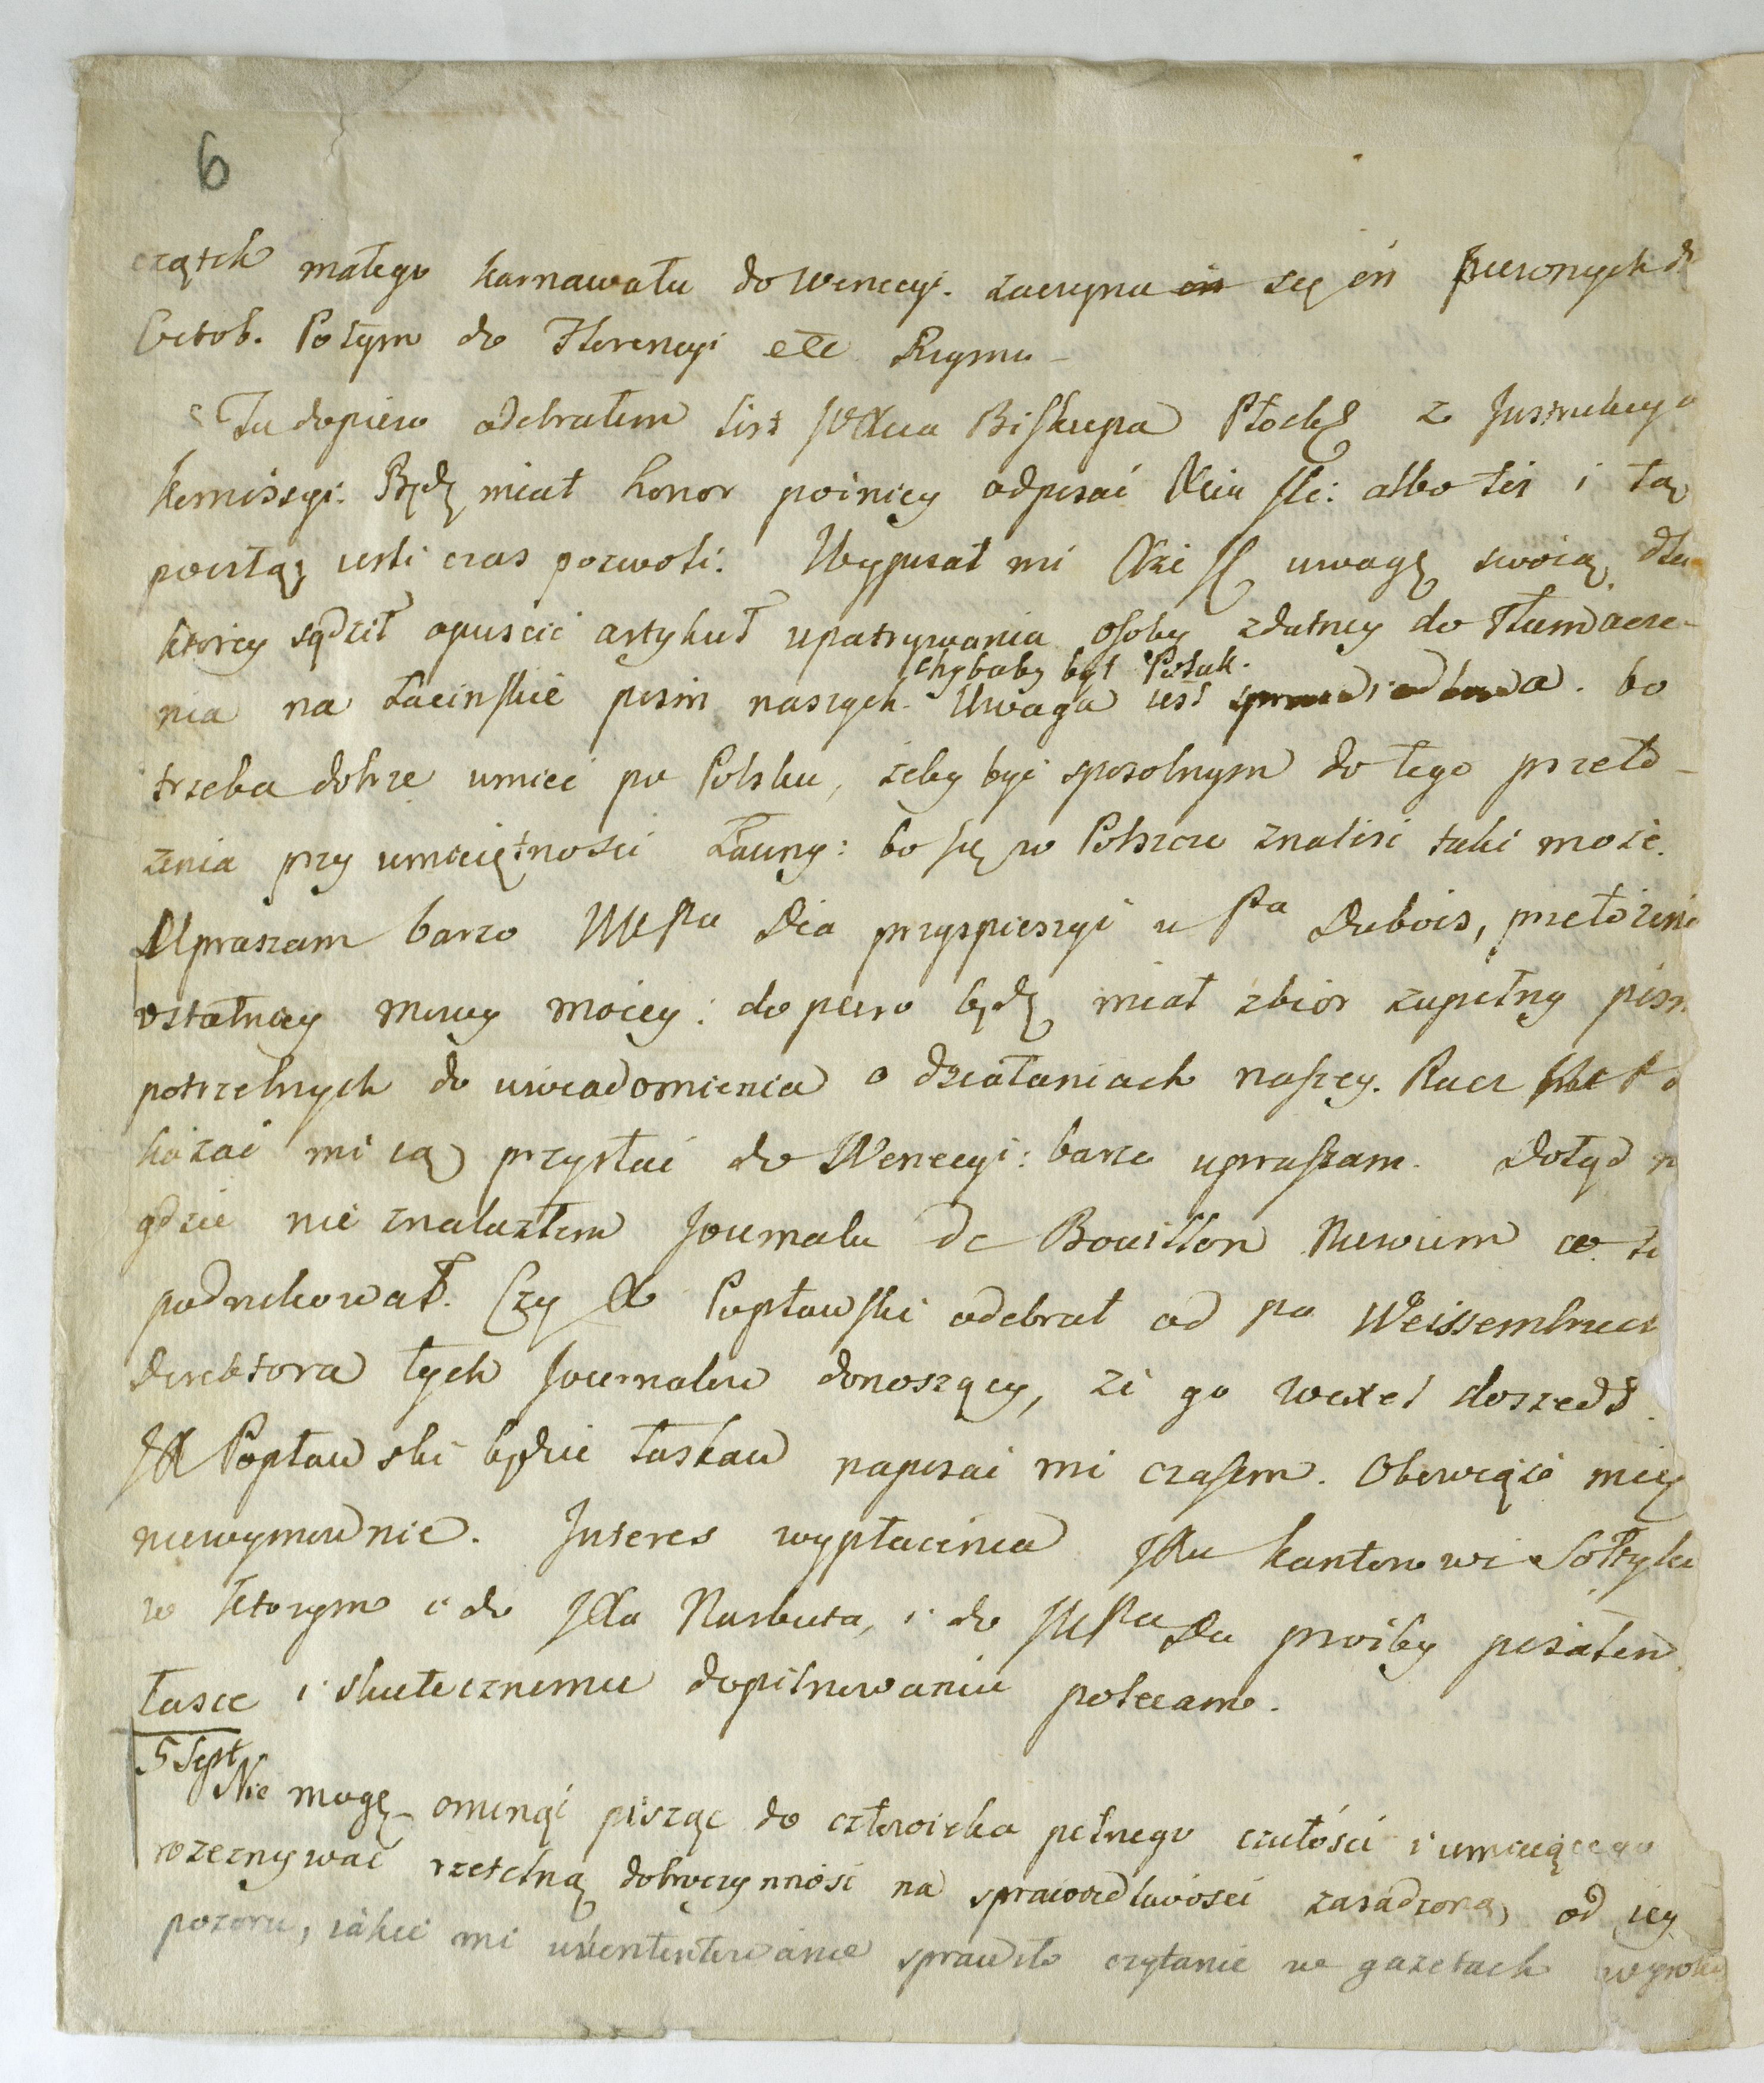 6
czątek małego karnawału do Wenecyi. zaczyna się ón pierwszych
Octob. Potym do Florencyi etc Rzymu –
Tu dopiero odebrałem list Biskupa Płocks z Instrukcyą
Komissyi. Będę miał honor poźniey odpisać Xciu też i tą
pocztą iesli czas pozwoli. Wypisał mi uwagę swoią, dla
ktorey sądził opuscić artykuł upatrywania osoby zdatney do tłumacze-
chybaby był Polak.
nia na Łacinskie pism naszych. Uwaga iest sprawiedliwa. bo
trzeba dobrze umieć po Polsku, żeby być sposobnym do tego przeło-
żenia przy umieiętnosci Łaciny: bo się w Polszcze znaliść taki może.
Upraszam barzo Pa Dia przyspieszyć u Pa Dubois, przełożenie
ostatniey mowy moiey: dopiero będę miał zbior zupełny pism
potrzebnych do uwiadomienia o działaniach naszey. Racz
kazać mi ią przysłać do Wenecyi: barzo upraszam. Dotąd
gdzie nie znalazłem Journalu de Bouillon. Niewiem co
podrukował. Czy X Popławski odebrał od Pa Weissembruch
Direktora tych Journalow donoszący, że go wexel doszedł.
JX Popławski będzie łaskaw napisać mi czasem. Obowiąże mię
niewymownie. Interes wypłacenia JXu kantorowi Sołtyka
w ktorym i do JXa Narbuta, i do Pa Da prośby pisałem
łasce i skutecznemu dopilnowaniu polecam.
5 Sept
Nie mogę ominąć pisząc do człowieka pełnego czułości i umieiącego
rozeznywać rzetelną dobroczynność na sprawiedliwości zasadzoną, od iey
pozoru, iakie mi ukontentowanie sprawiło czytanie w gazetach wyroku